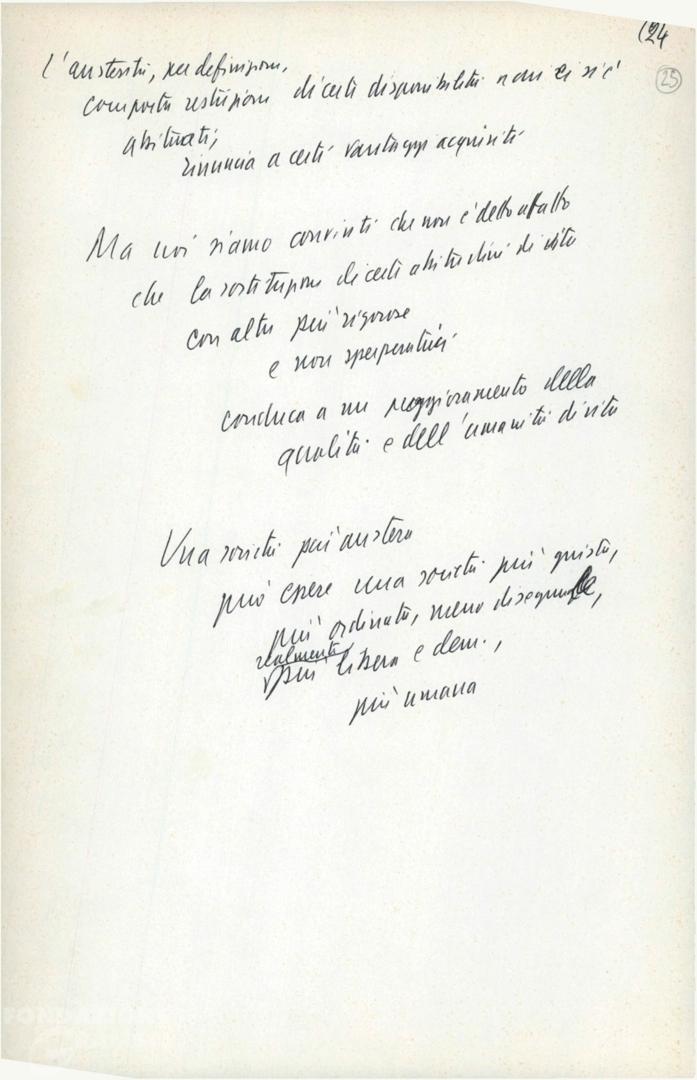 (24
25
L'austerità, per definizione,
comporta restrizioni di certe disponibilità a cui ci si è
abituati,
rinuncia a certi vantaggi acquisiti
Ma noi siamo convinti che non è detto affatto
che la sostituzione di certe abitudini di vita
con altre più rigorose
e non sperperatrici
conduca a un peggioramento della
qualità e dell'umanità di vita
Una società più austera
può essere una società più giusta,
più ordinata, meno diseguale,
realmente
più libera e dem.,
più umana